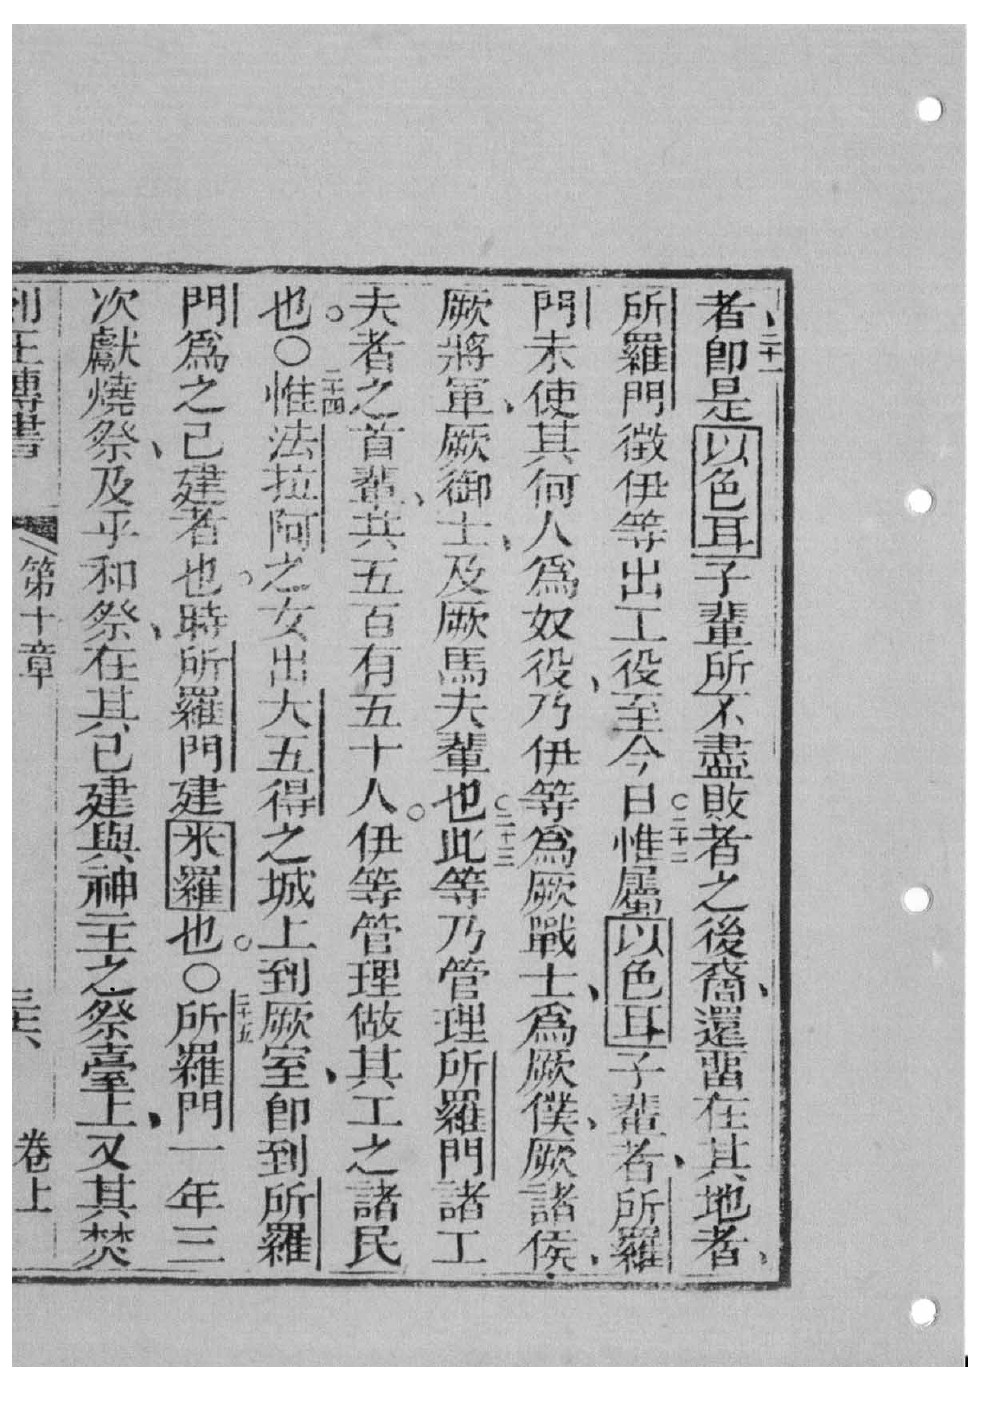 者卽是以色耳子輩所不盡敗者之後裔、還畱在其地者、
二十一
所羅門徵伊等出工役至今日○惟屬以色耳子輩者、所羅
二十二
門未使其何人爲奴役、乃伊等爲厥戰士、爲厥僕、厥諸侯、
厥將軍、厥御士、及厥馬夫輩也○此等乃管理所羅門諸工
二十三
夫者之首輩、共五百有五十人。伊等管理做其工之諸民
也。○惟法拉阿之女出大五得之城上到厥室、卽到所羅
二十四
門爲之已建者也。時所羅門建米羅也。○所羅門一年三
二十五
次獻燒祭、及乎和祭、在其已建與神主之祭臺上、又其焚
列王傳書 第十章 卷上